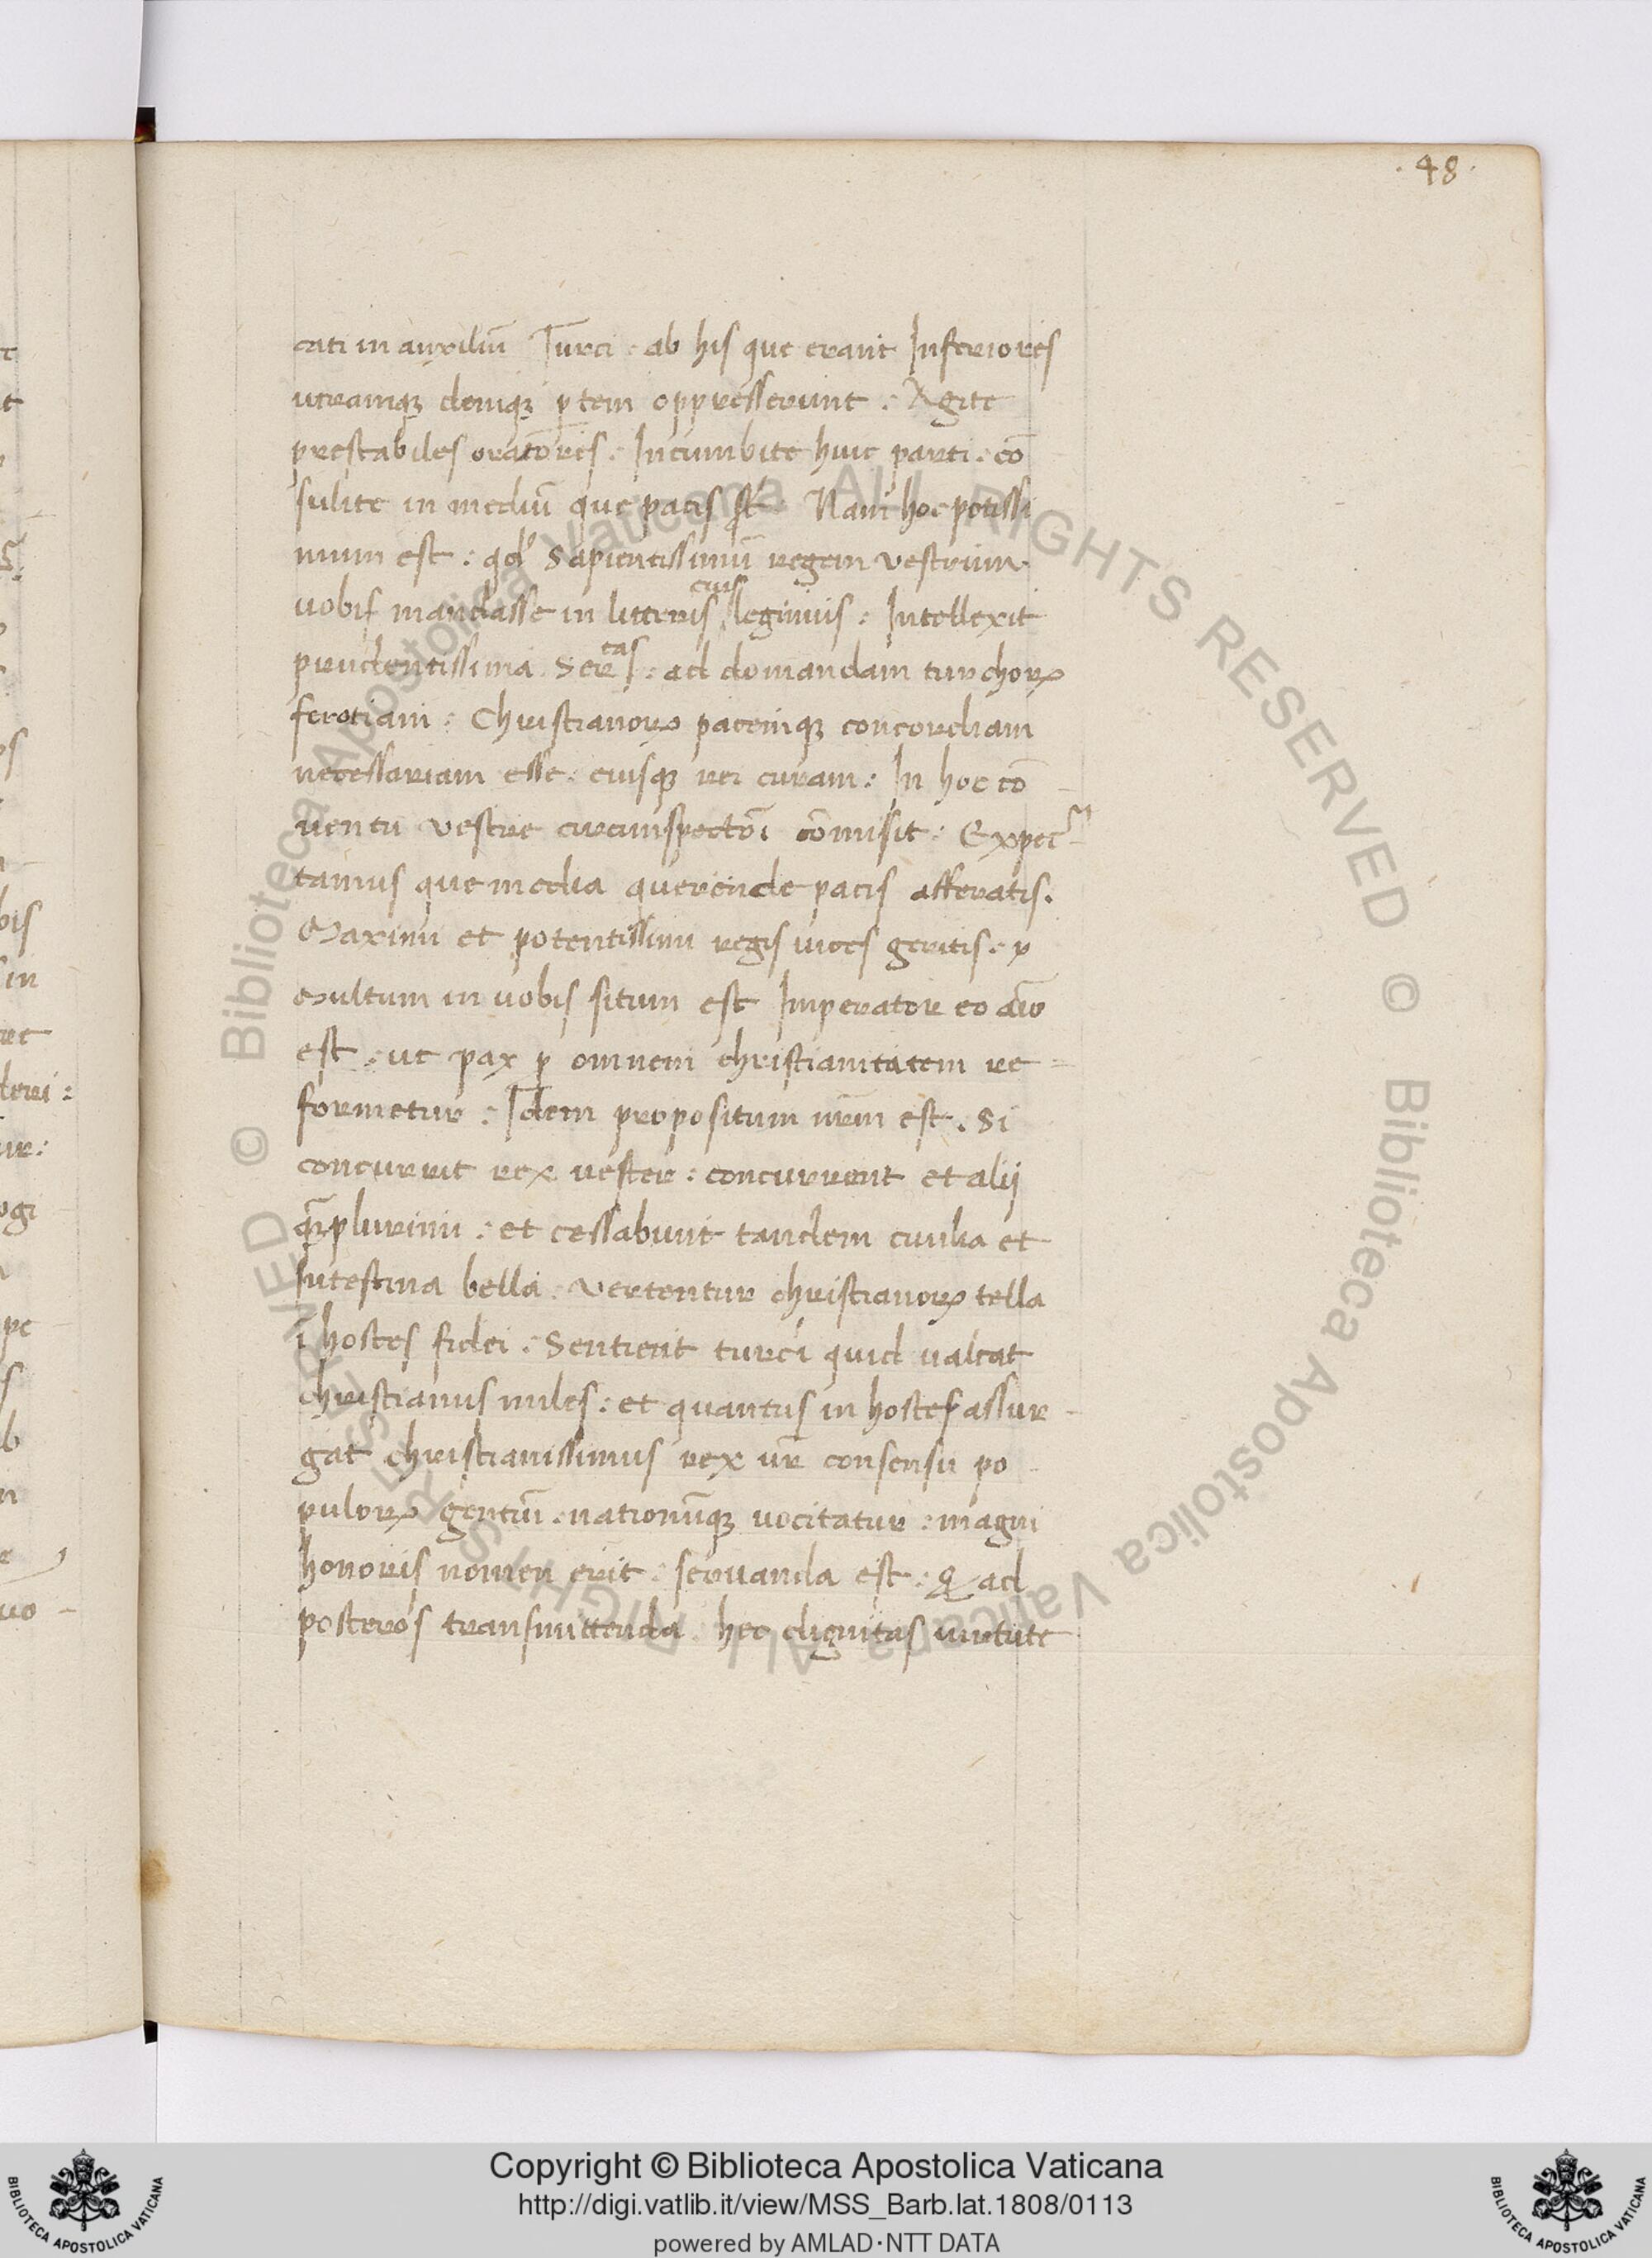 · 48 ·
cati in auxiliū Turci : ab his que erant Inferiores
utramqꝫ deniqꝫ ꝑtem oppresserunt : Agite
prestabiles oratores : Incumbite huic parti : cō
sulite in mediū que pacis st̄ : Nam hoc potissi
mum est : qd' Sapientissimū regem vestrum
uobis mandasse in litteris eius legimus : Intellexit
prudentissima Sertas : ad domandam turchoꝝ
ferotiam : Christianoꝝ pacemqꝫ concordiam
necessariam esse : eiusqꝫ rei curam : In hoc cō
uentu vestre circumspectōi cōmisit : Expec
tamus que media querende pacis afferatis .
Maximi et potentissimi regis uices geritis :
Multum in uobis situm est Imperator eo aīo
est : ut pax ꝑ omnem christianitatem re
formetur : Idem propositum nr̄m est . Si
concurrit rex uester : concurrent et alij
qȝplurimi : et cessabunt tandem ciuilia et
Intestina bella : Vertentur christianoꝝ tella
ī hostes fidei : Sentient turci quid ualeat
christianus miles : et quantus in hostes assur
gat christianissimus rex vr̄ consensu po
puloꝝ gentiū : nationūqꝫ uocitatur : magni
honoris nomen erit : seruanda est : ad
posteros transmittenda hec dignitas uirtute
© Biblioteca Apostolica Vaticana ALL RIGHTS RESERVED © Biblioteca Apostolica Vaticana ALL RIGHTS RESERVED
Copyright © Biblioteca Apostolica Vaticana
http://digi.vatlib.it/view/MSS_Barb.lat.1808/0113
powered by AMLAD·NTT DATA
BIBLIOTECA APOSTOLICA VATICANA
BIBLIOTECA APOSTOLICA VATICANA